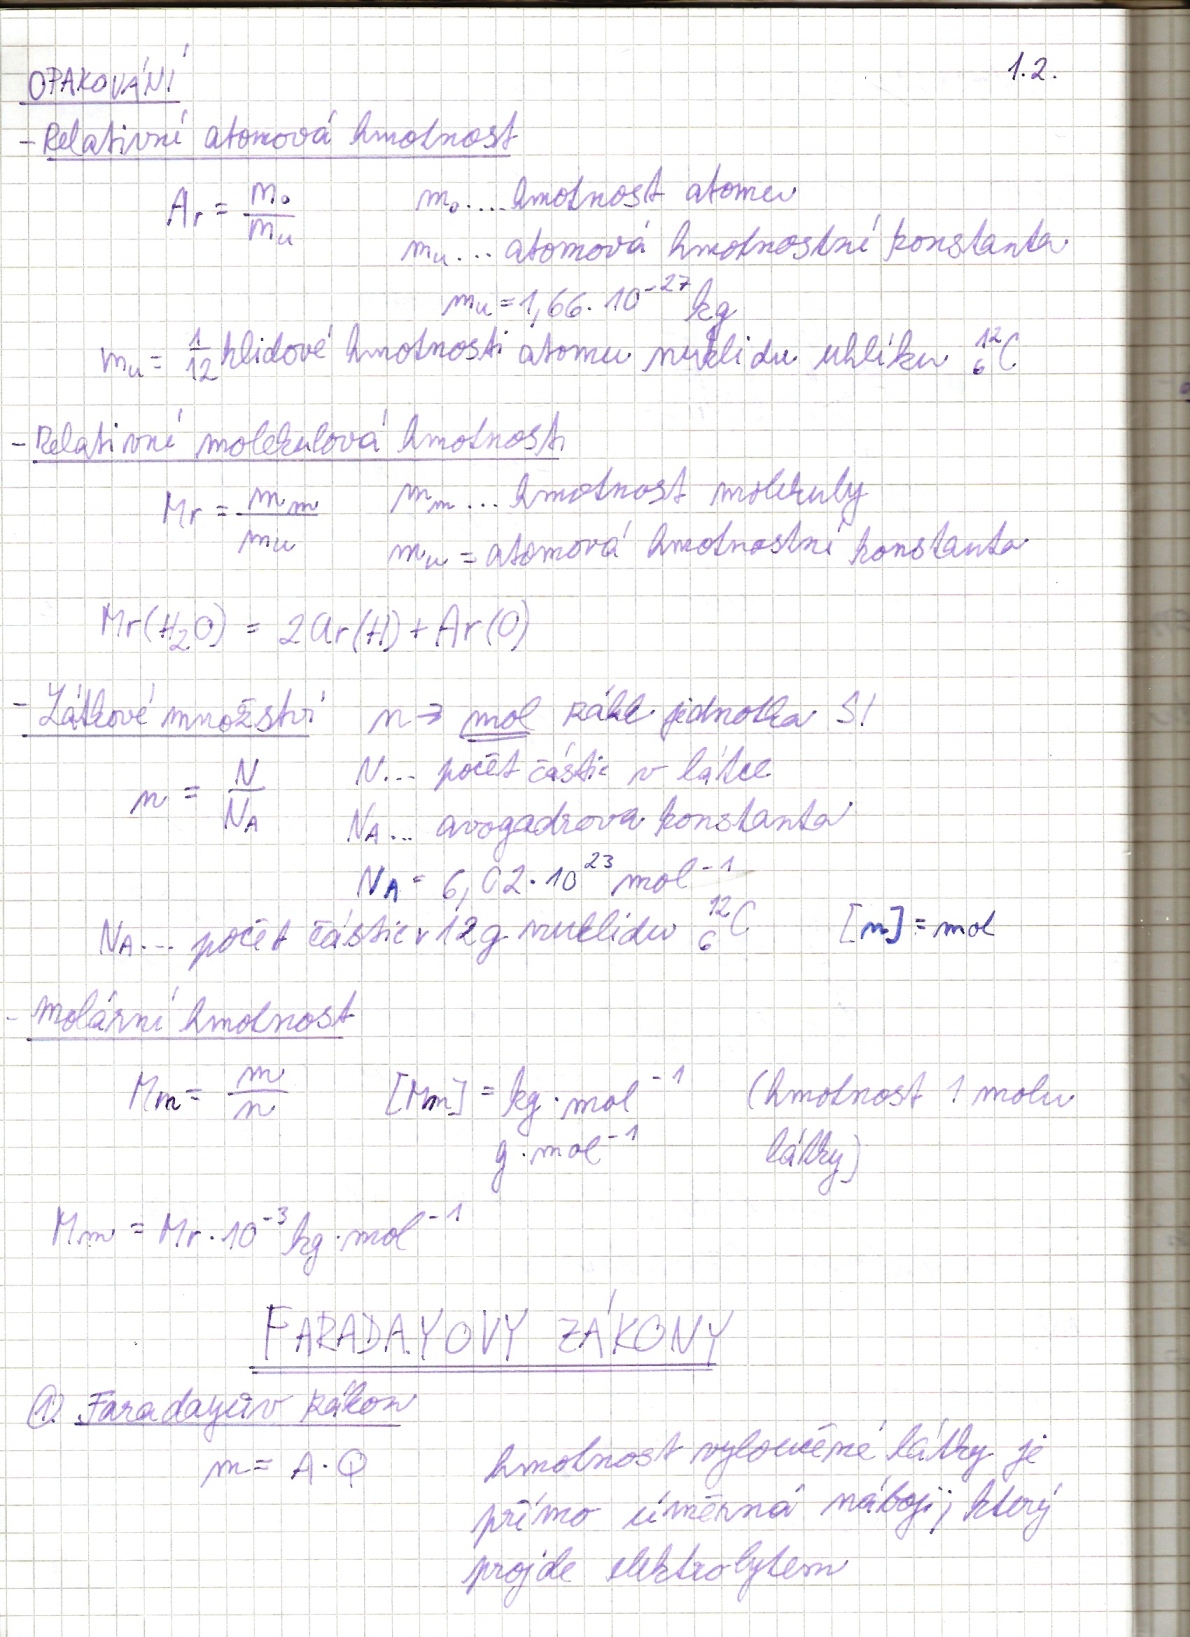 OPAKOVÁNÍ 1.2.
- Relativní atomová hmotnost
Ar = m₀/mᵤ m₀.... hmotnost atomu
mᵤ... atomová hmotnostní konstanta
mᵤ = 1,66 · 10⁻²⁷ kg
mᵤ = 1/12 klidové hmotnosti atomu nuklidu uhlíku ¹²₆C
- Relativní molekulová hmotnost
Mr = mₘ/mᵤ mₘ... hmotnost molekuly
mᵤ = atomová hmotnostní konstanta
Mr(H₂O) = 2Ar(H) + Ar(O)
- Látkové množství n → mol zákl. jednotka SI
n = N/N_A N... počet částic v látce
N_A... avogadrova konstanta
N_A = 6,02 · 10²³ mol⁻¹
N_A... počet částic v 12g nuklidu ¹²₆C [n] = mol
- Molární hmotnost
Mₘ = m/n [Mₘ] = kg · mol⁻¹ (hmotnost 1 molu
g · mol⁻¹ látky)
Mₘ = Mr · 10⁻³ kg · mol⁻¹
FARADAYOVY ZÁKONY
1. Faradayův zákon
m = A · Q hmotnost vyloučené látky je
přímo úměrná náboji, který
projde elektrolytem